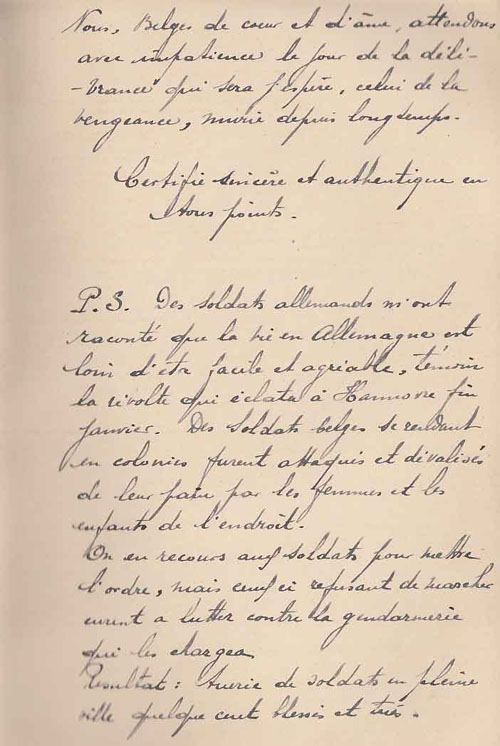 Nous, Belges de cœur et d'âme, attendons
avec impatience le jour de la déli-
-vrance" qui sera j'espère, celui de la
vengeance, murie depuis longtemps.
Certifié sincère et authentique en
tous points.
P.S. Des soldats allemands m'ont
raconté que la vie en Allemagne est
loin d'être facile et agréable, témoin
la révolte qui éclata à Hannovre fin
janvier. Des soldats belges se rendant
en colonies furent attaqués et dévalisés
de leur pain par les femmes et les
enfants de l'endroit.
On en recours aux soldats pour mettre
l'ordre, mais ceux ci refusant de marcher
eurent a lutter contre la gendarmerie
qui les chargea
Resultat : tuerie de soldats en pleine
ville quelque cent blessés et tués.